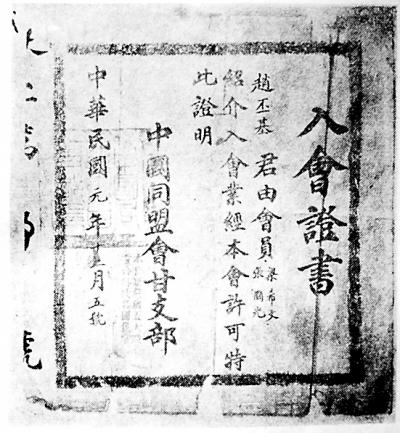 入會證書
趙丕基 君由會員梁希文 張爾光
紹介入會業經本會許可特
此證明
中國同盟會甘支部
中華民國元年十二月五號